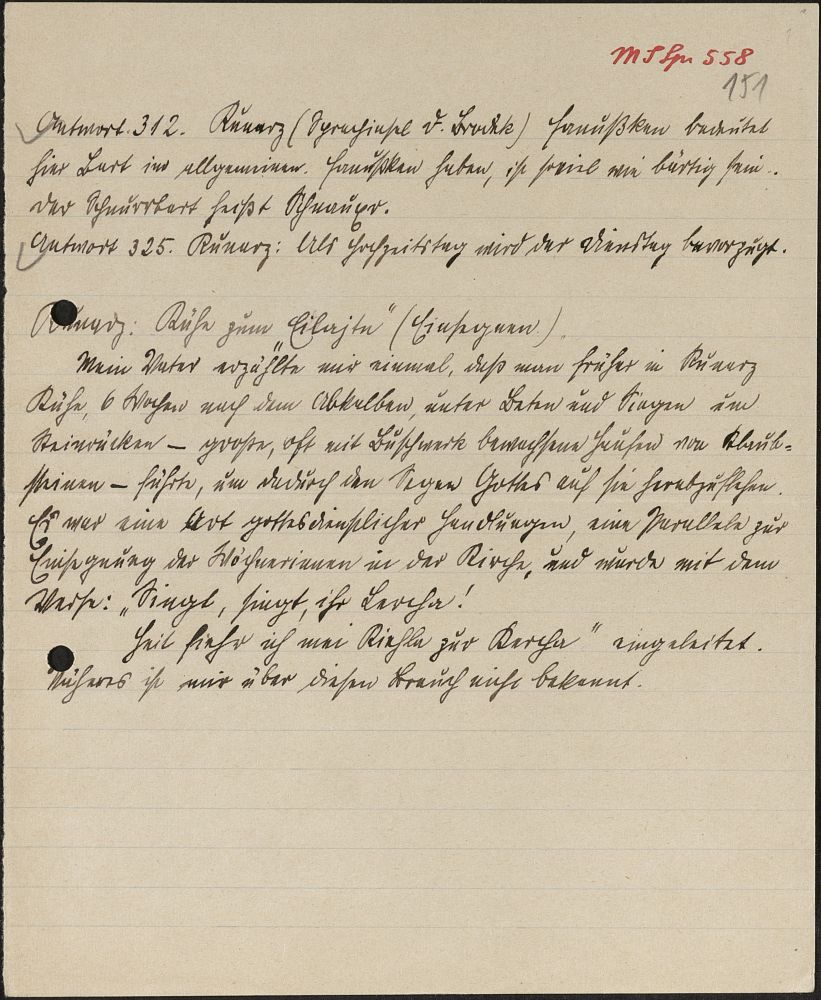 M S Spr 558
151
Antwort 312. Runarz (Sprachinsel d. Brodek) Hanußken bedeutet
hier Bart im allgemeinen. Hanußken haben, ist soviel wie bärtig sein.
Der Schnurrbart heißt Schnauzr.
Antwort 325. Runarz: Als Hochzeitstag wird der Dienstag bevorzugt.
Runarz: Kühe zum „Eilajtn" (Einsegnen.)
Mein Vater erzählte mir einmal, daß man früher in Runarz
Kühe, 6 Wochen nach dem Abkalben, unter Beten und Singen um
Steinrücken – große, oft mit Buschwerk bewachsene Haufen von Klaub=
steinen – führte, um dadurch den Segen Gottes auf sie herabzuflehen.
Es war eine Art gottesdienstlicher Handlungen, eine Parallele zur
Einsegnung der Wöchnerinnen in der Kirche, und wurde mit dem
Verse: „Singt, singt, ihr Lercha!
Heit fiehr ich mei Kiehla zur Kercha" eingeleitet.
Näheres ist mir über diesen Brauch nicht bekannt.